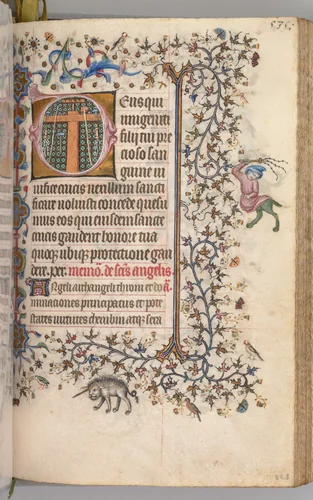 Deus qui
unigeniti
filij tui pre
cioso san
guine ui
uifice crucis uexillum sancti
ficare uoluisti concede quesu
mus eos qui eiusdem sancte
crucis gaudent honore tua
quoq; ubiq; protectione gau
dere. per. memoꝛ. de scīs angelis.
Angeli archangeli throni et do
minationes principatus et pote
states uirtutes cherubin atq; sera